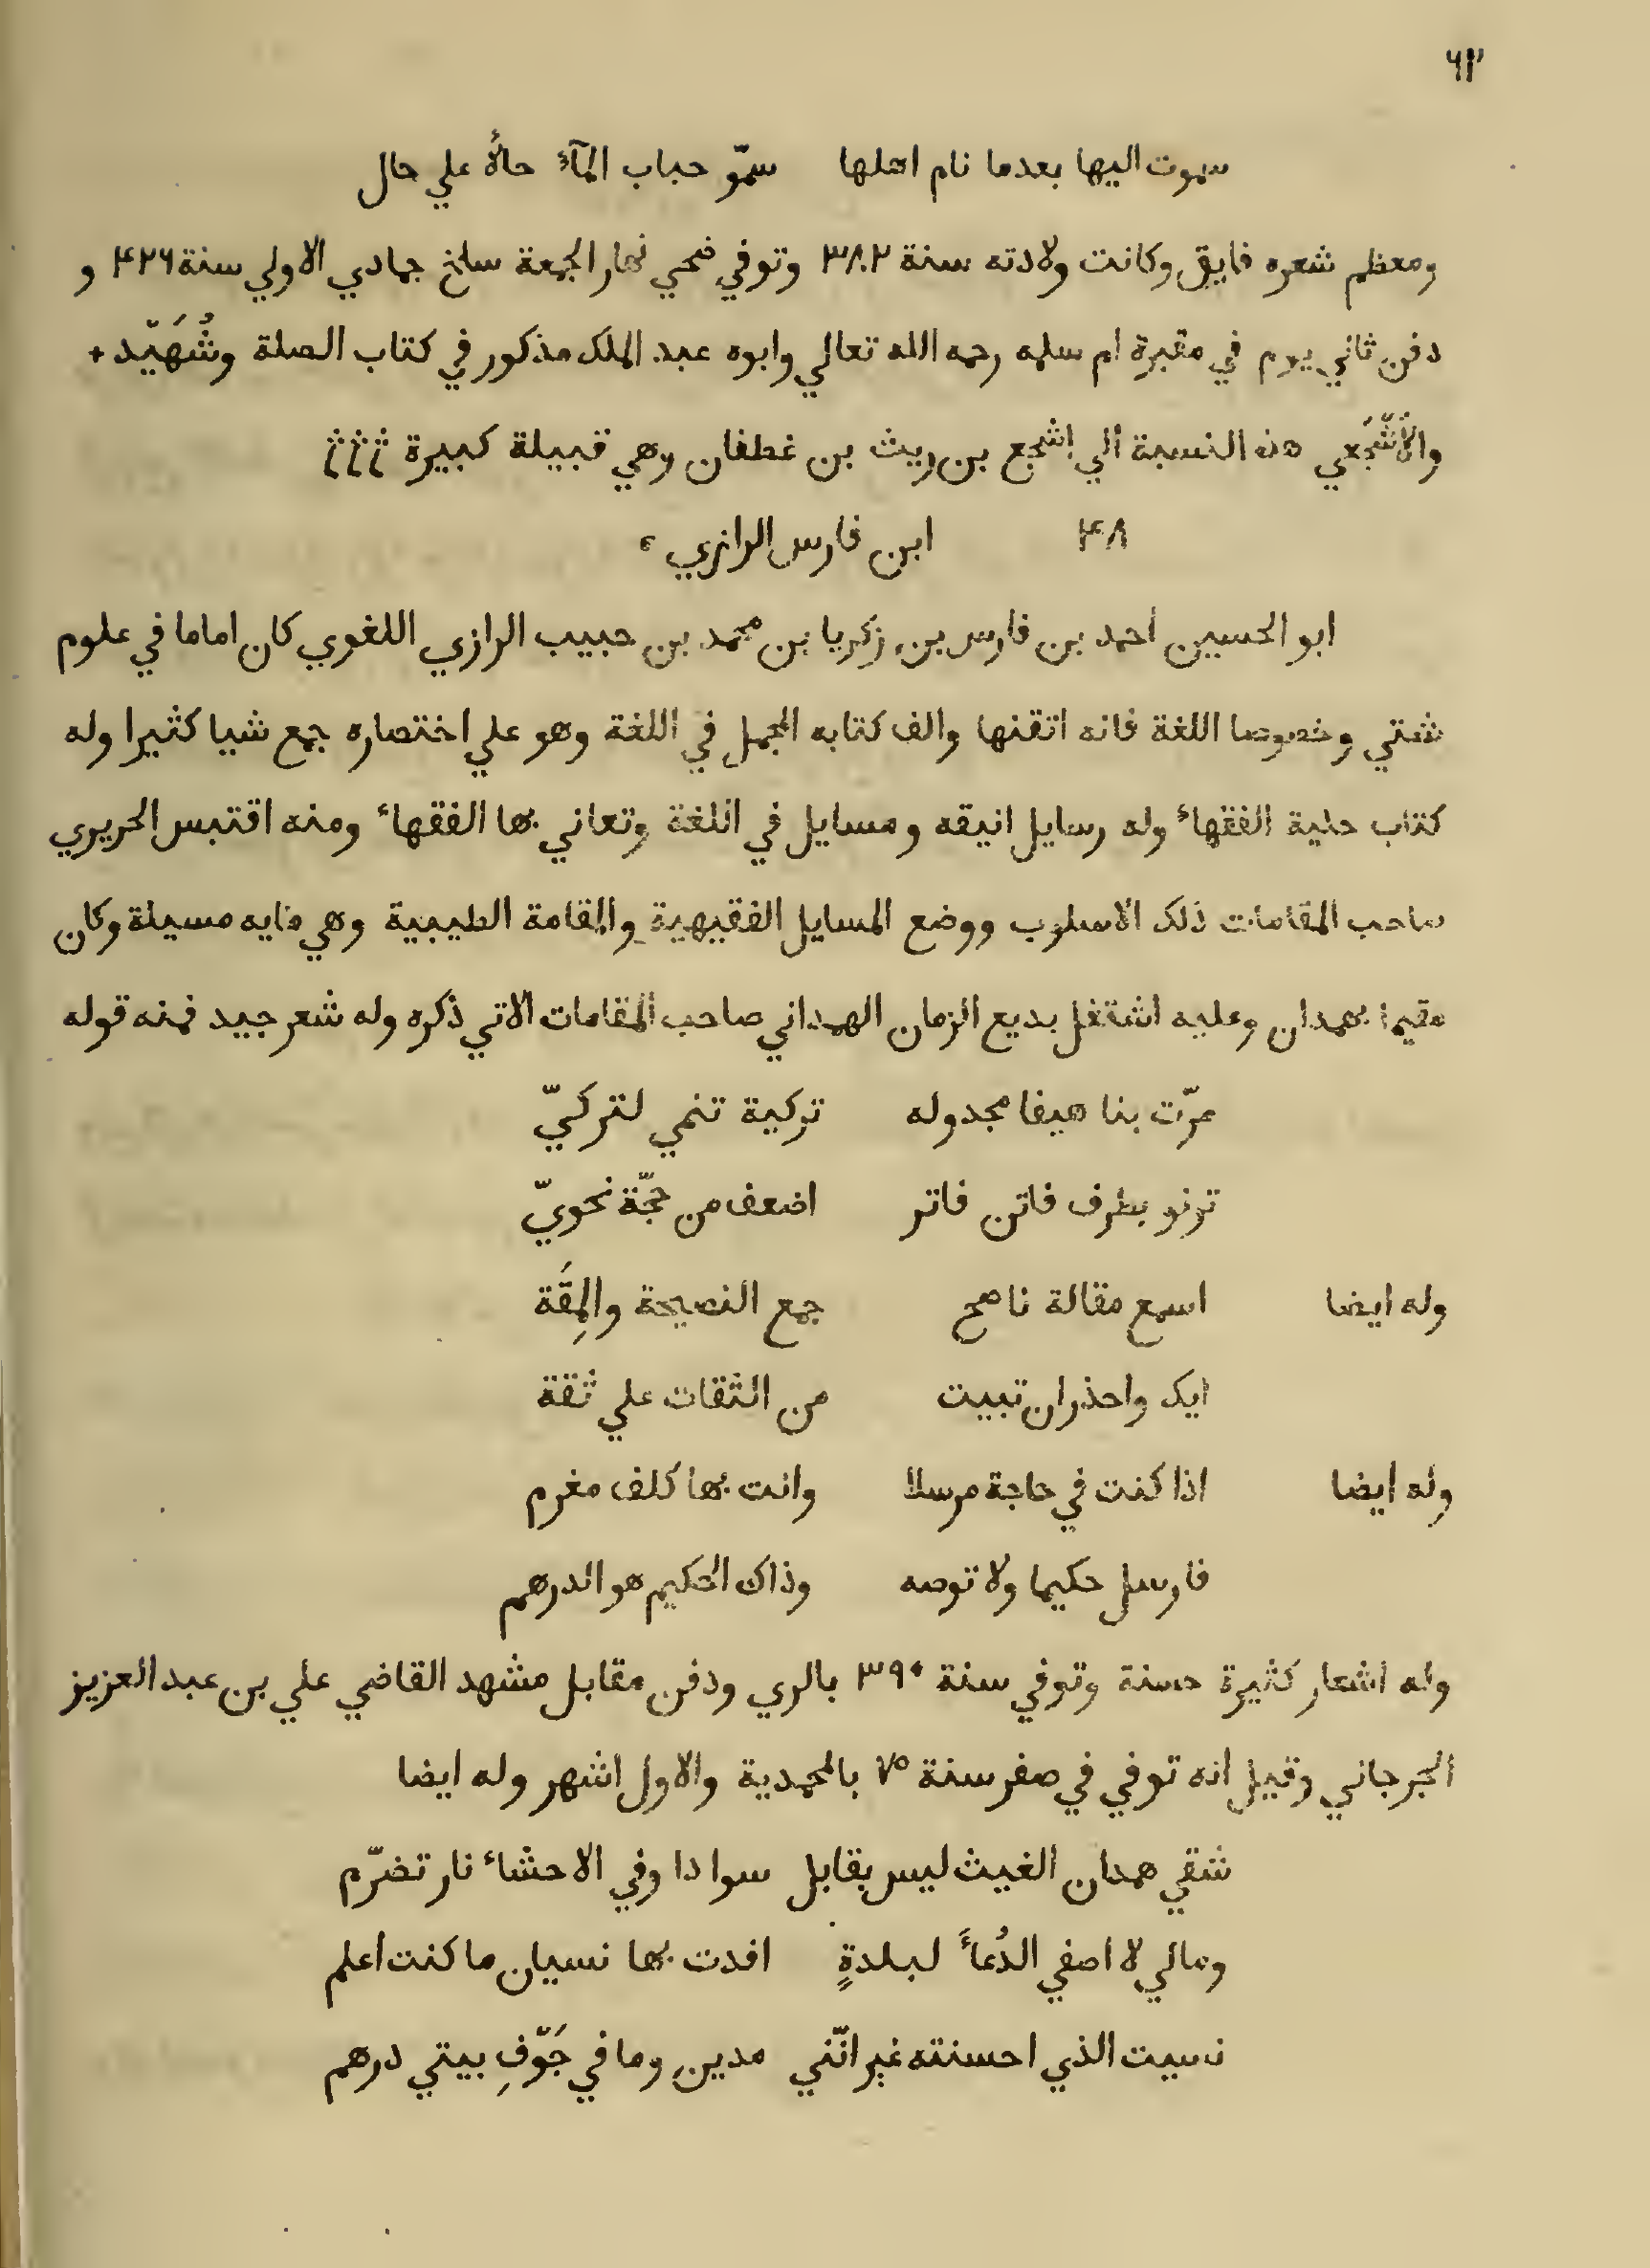 ٦٣
سموت اليها بعدما نام اهلها سموّ حباب المآءُ حالأ علي حال
ومعظم شعره فايق وكانت ولادته سنة ٣٨٢ وتوفي ضحي نهار الجمعة سلخ جمادي الاولي سنة ٤٢٦ و
دفن ثاني يوم في مقبرة ام سلمه رحمه الله تعالي وابوه عبد الملك مذكور في كتاب الصلة وشُهَيّد +
والأشّجَعي هذه النسبة الي اشجع بن ريث بن غطفان وهي قبيلة كبيرة
٤٨ ابن فارس الرازي
ابو الحسين احمد بن فارس بن زكريا بن محمد بن حبيب الرازي اللغوي كان اماما في علوم
شتي وخصوصا اللغة فانه اتقنها والف كتابه المجمل في اللغة وهو علي اختصاره جمع شيا كثيرا وله
كتاب حلية الفقهاء وله رسايل انيقه ومسايل في اللغة وتعاني بها الفقهاء ومنه اقتبس الحريري
صاحب المقامات ذلك الاسلوب ووضع المسايل الفقيهية والمقامة الطيبية وهي مايه مسيلة وكان
مقيما بهمدان وعليه اشتغل بديع الزمان الهمداني صاحب المقامات الاتي ذكره وله شعر جيد فمنه قوله
مرّت بنا هيفا مجدوله تركية تنمي لتركيّ
ترنو بطرف فاتن فاتر اضعف من حجّة نحويّ
وله ايضا اسمع مقالة ناصح جمع النصيحة والمِقَة
ايك واحذر ان تبيت من الثقات علي ثقة
وله ايضا اذا كنت في حاجة مرسلا وانت بها كلف مغرم
فارسل حكيما ولا توصه وذاك الحكيم هو الدرهم
وله اشعار كثيرة حسنة وتوفي سنة ٣٩٠ بالري ودفن مقابل مشهد القاضي علي بن عبد العزيز
الجرجاني وقيل انه توفي في صفر سنة ٧٥ بالمحمدية والاول اشهر وله ايضا
شقي همدان الغيث ليس بقابل سوا دا وفي الاحشاء نار تضرّم
ومالي لا اصفي الدُعاءً لبلدةٍ افدت بها نسيان ما كنت اعلم
نسيت الذي احسنته غير انّني مدين وما في جَوّفِ بيتي درهم